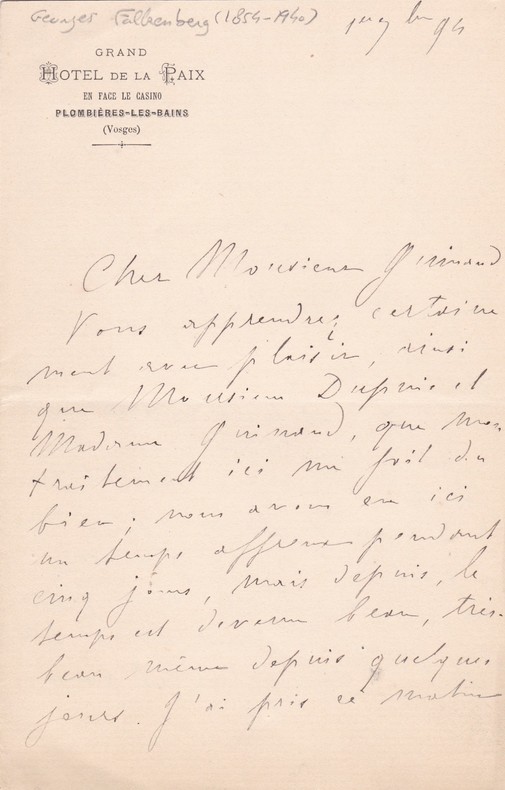 Georges Falkenberg (1854-1940)
94
GRAND
HOTEL DE LA PAIX
EN FACE LE CASINO
PLOMBIÈRES-LES-BAINS
(Vosges)
Cher Monsieur Guinand
Vous apprendrez certaine
ment avec plaisir, ainsi
que Monsieur Dupuis et
Madame Guinand, que mon
traitement ici me fait du
bien ; nous avons eu ici
un temps affreux pendant
cinq jours, mais depuis, le
temps est devenu beau, très-
beau même depuis quelques
jours. J'ai pris ce matin